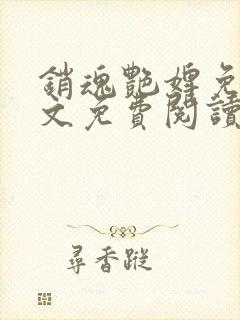 銷魂艷婢免
文免費閱讀
尋香蹤